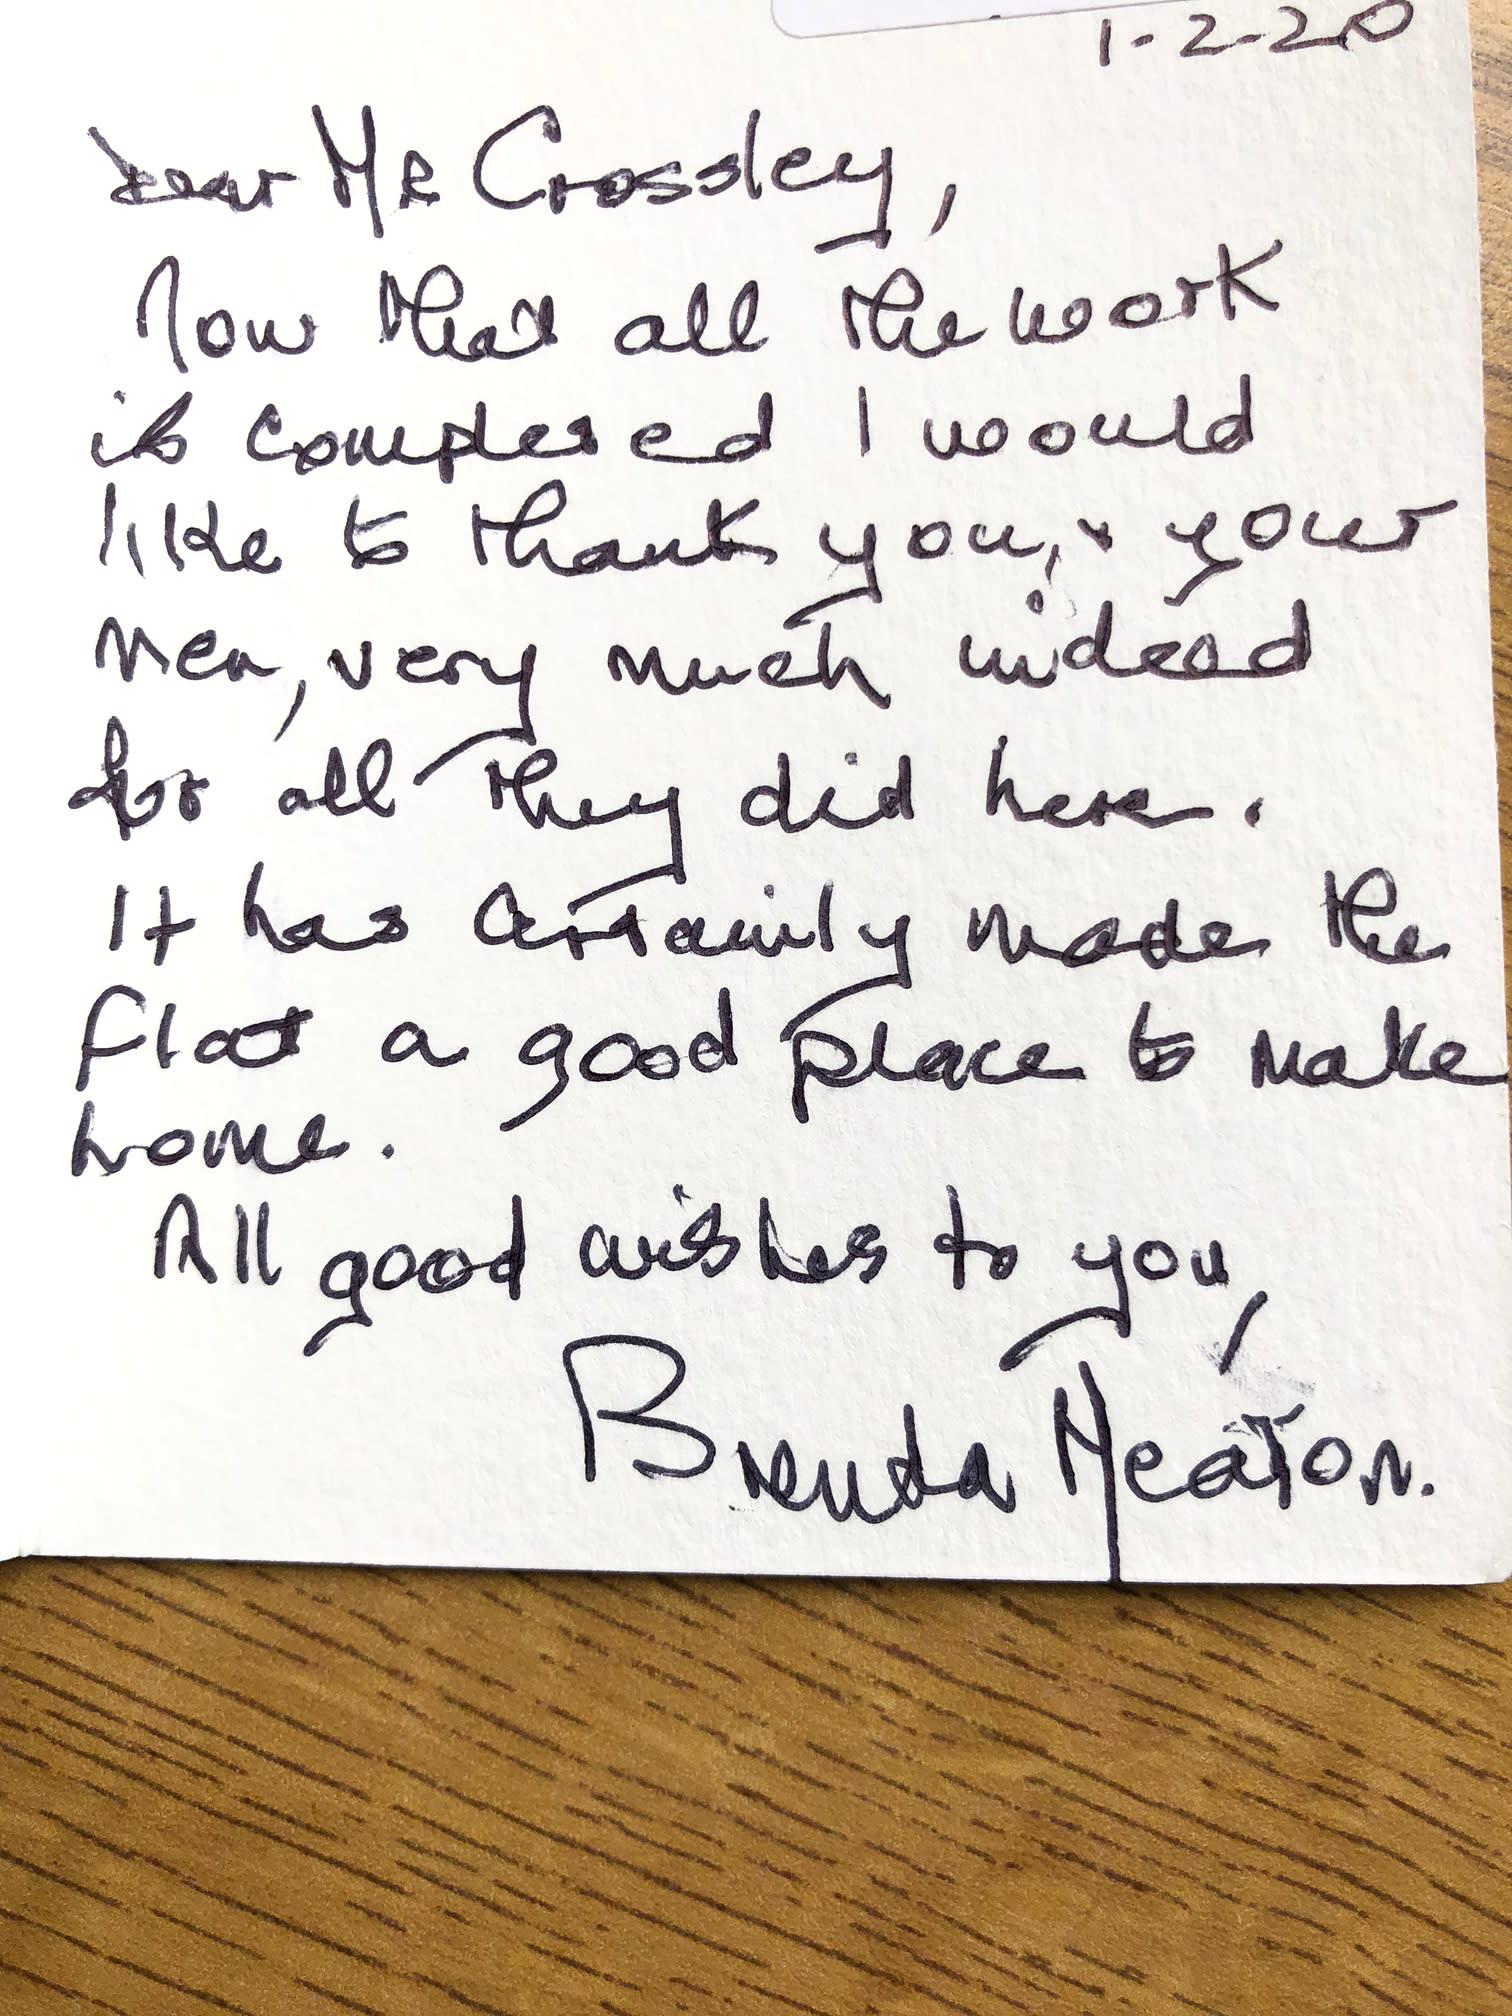 1-2-20
Dear Mr Crossley,
Now that all the work
is completed I would
like to thank you, & your
men, very much indeed
for all they did here.
It has certainly made the
flat a good place to make
home.
All good wishes to you,
Brenda Meaton.